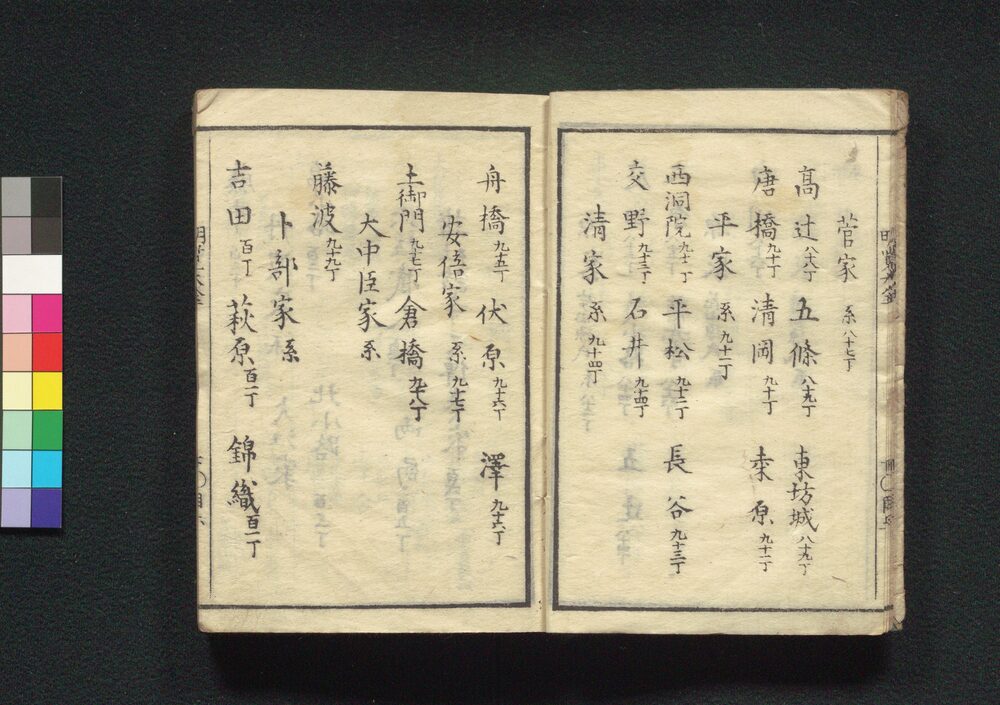 菅家 系八十七丁
高辻八十八丁 五條八十九丁 東坊城八十九丁
唐橋九十丁 清岡九十丁 桒原九十一丁
平家 系九十一丁
西洞院九十二丁 平松九十二丁 長谷九十三丁
交野九十三丁 石井九十四丁
清家 系九十四丁
舟橋九十五丁 伏原九十六丁 澤九十六丁
安倍家 系九十七丁
土御門九十七丁 倉橋九十八丁
大中臣家 系
藤波九十九丁
卜部家 系
吉田百丁 萩原百一丁 錦織百一丁